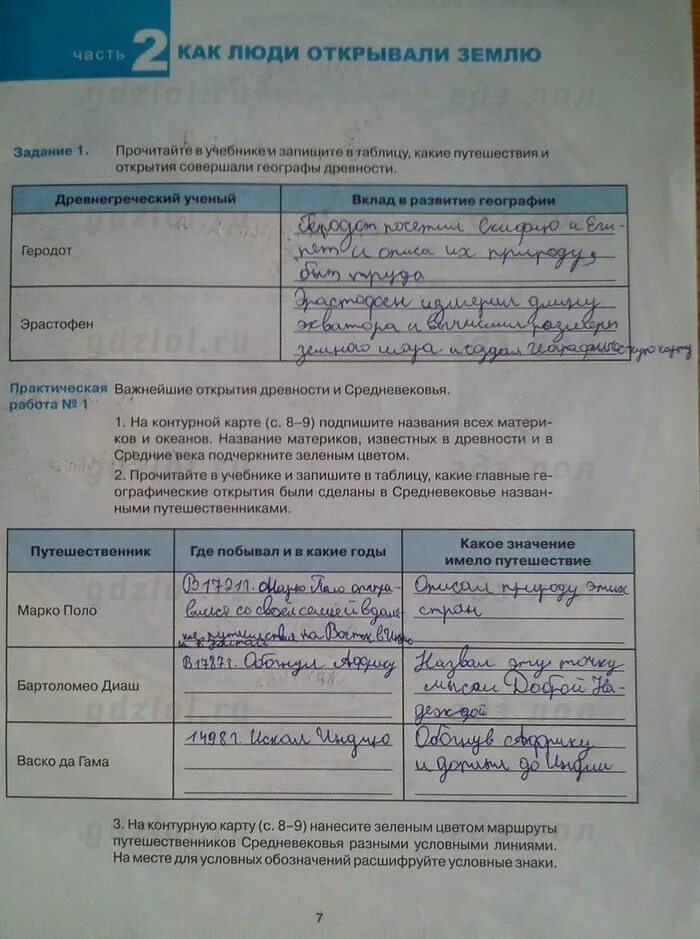 часть 2 КАК ЛЮДИ ОТКРЫВАЛИ ЗЕМЛЮ
gdzlol.ru
Задание 1. Прочитайте в учебнике и запишите в таблицу, какие путешествия и
открытия совершали географы древности.
Древнегреческий ученый Вклад в развитие географии
Геродот
Геродот посетил Скифию и Еги-
пет и описа их природу,
быт труда
Эрастофен
Эрастофен измерил длину
экватора и вычислил размеры
земного шара и создал географическую карту
gdzlol.ru
Практическая работа № 1
Важнейшие открытия древности и Средневековья.
1. На контурной карте (с. 8–9) подпишите названия всех матери-
ков и океанов. Название материков, известных в древности и в
Средние века подчеркните зеленым цветом.
2. Прочитайте в учебнике и запишите в таблицу, какие главные ге-
ографические открытия были сделаны в Средневековье назван-
ными путешественниками.
Путешественник Где побывал и в какие годы Какое значение
имело путешествие
Марко Поло
В 1721г. Марко Поло отпра-
вился со своей семьёй в даль-
кее путешествия на Восток в Индию
и Китай
Описал природу этих
стран
Бартоломео Диаш
В 1787г. Обогнул Африку
Назвал эту точку
мысом Доброй На-
деждой
gdzlol.ru
Васко да Гама
1498г Искал Индию
Обогнув Африку
и доплыл до Индии
3. На контурную карту (с. 8–9) нанесите зеленым цветом маршруты
путешественников Средневековья разными условными линиями.
На месте для условных обозначений расшифруйте условные знаки.
7